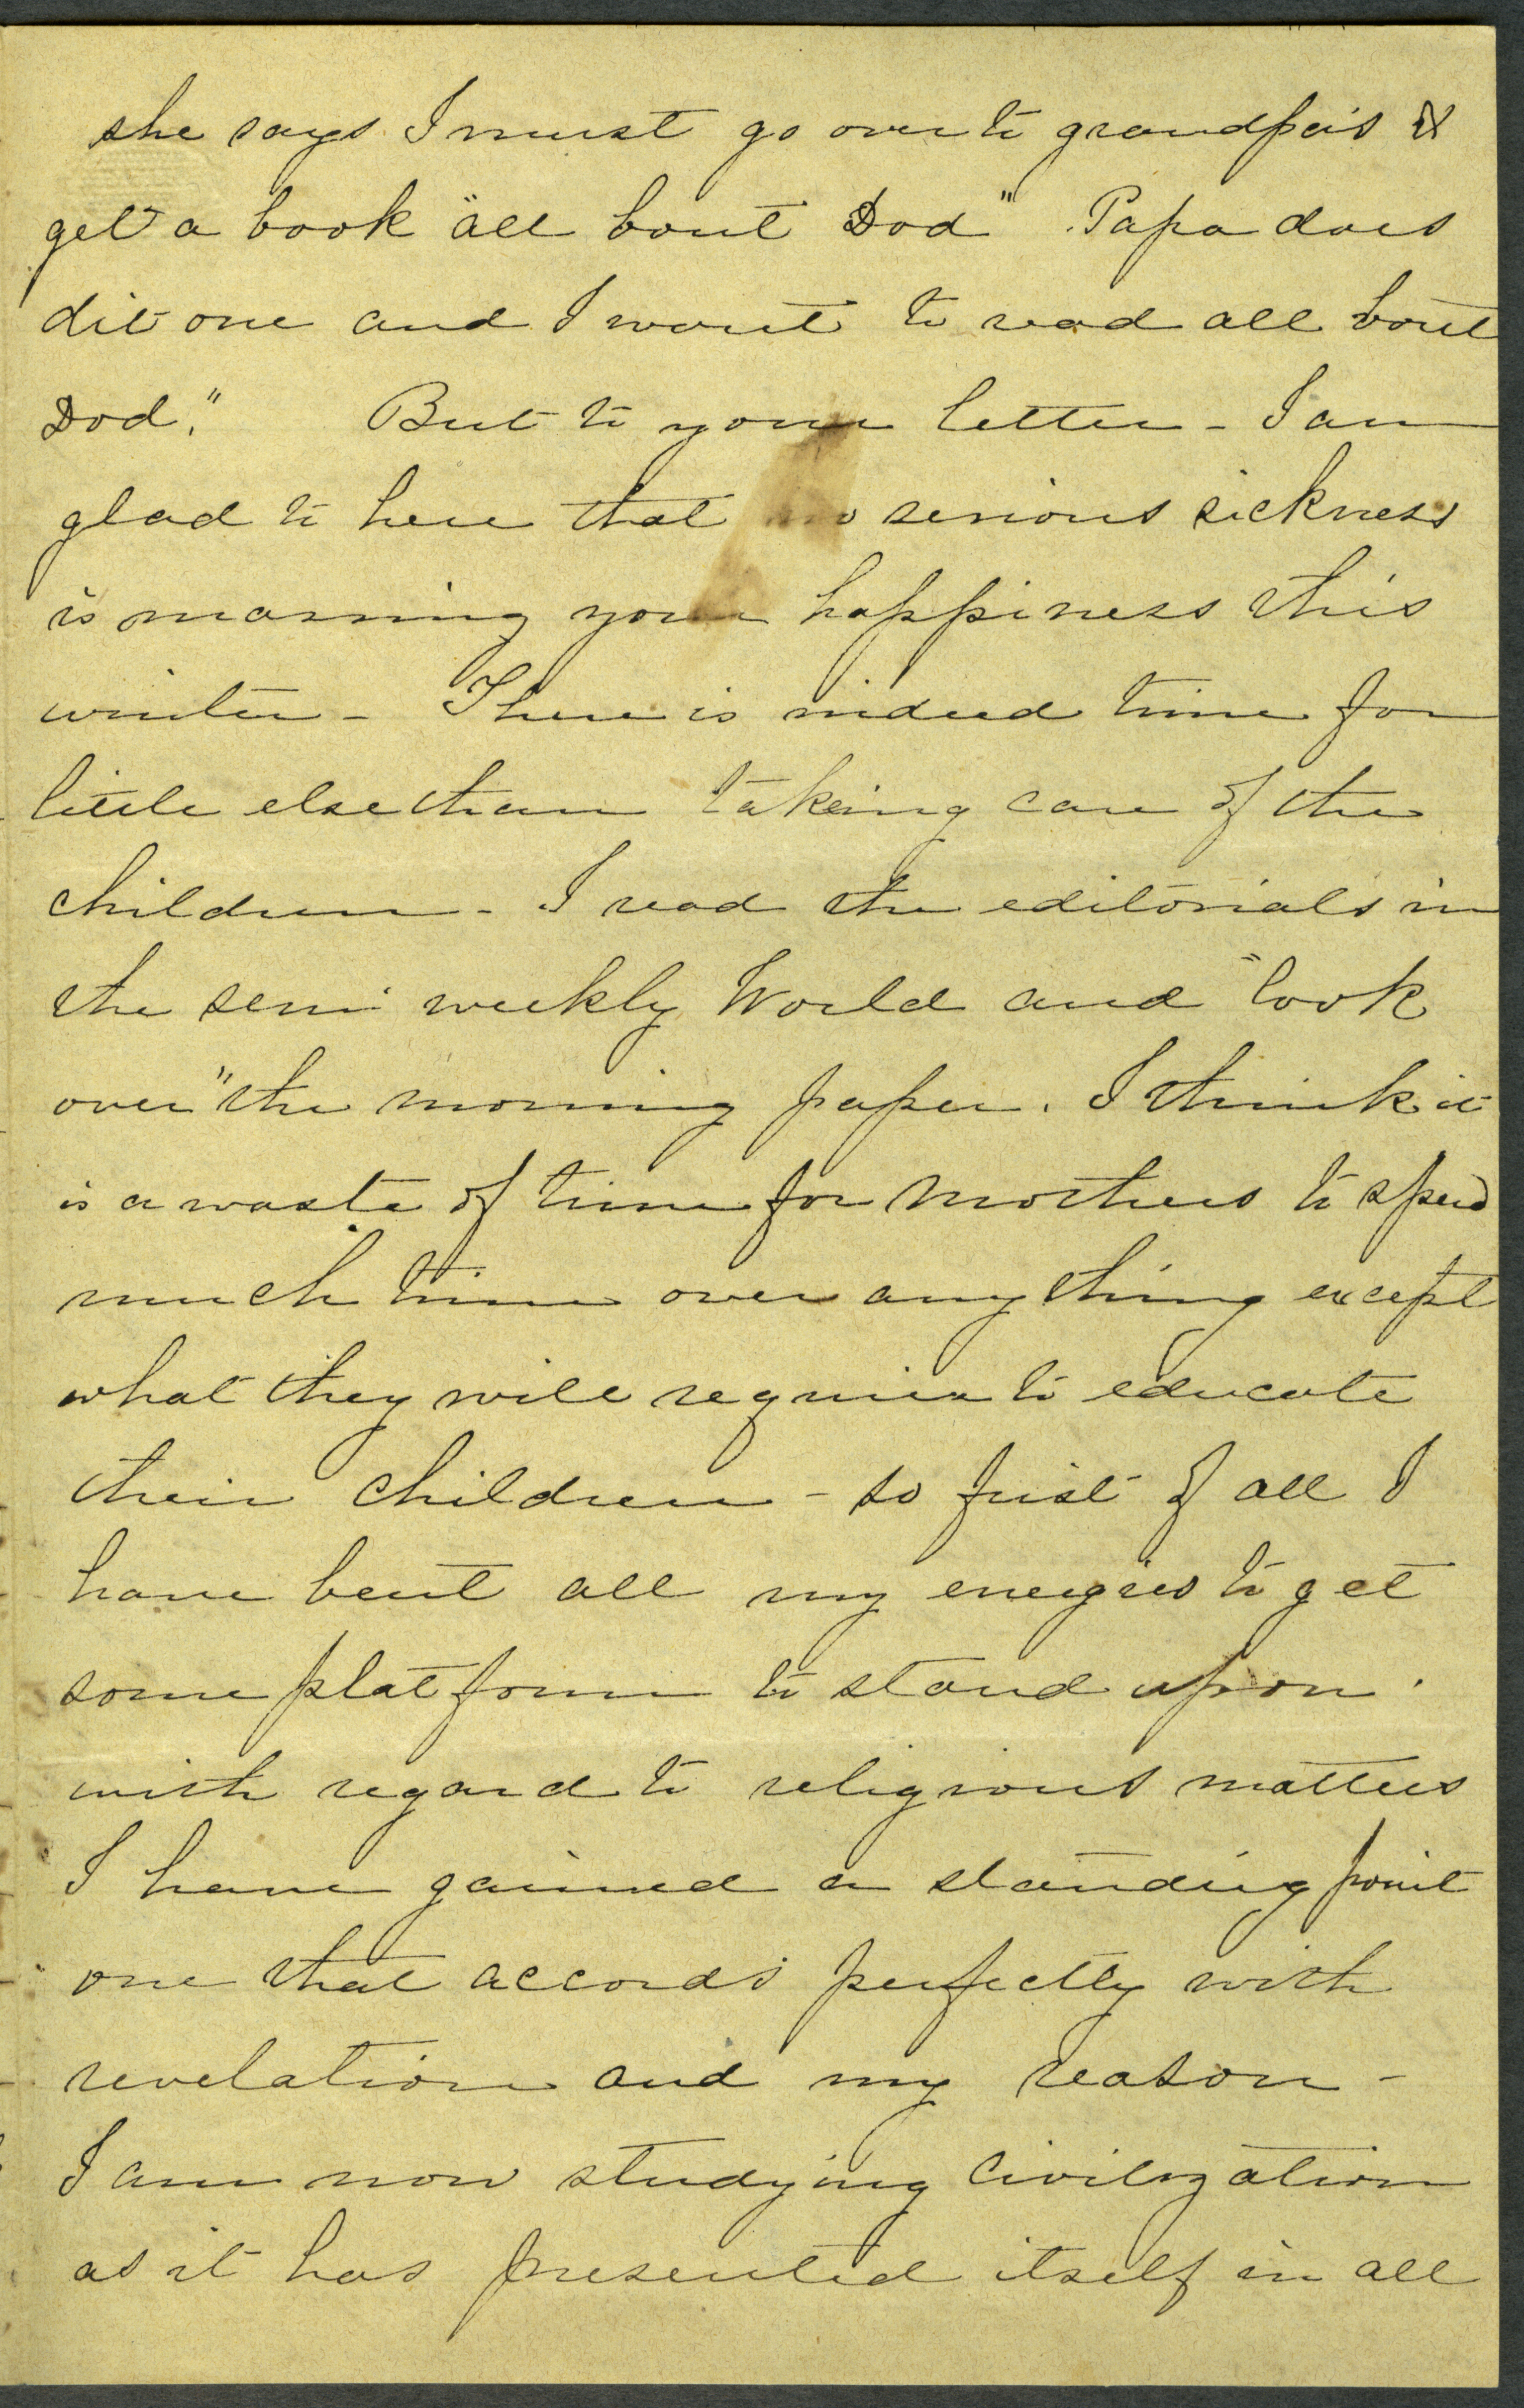 she says I must go over to grandpa's &
get a book "all bout Dod" Papa does
dit one and I want to read all bout
Dod."    But to your letter - I am
glad to here that no serious sickness
is marring your happiness this
winter - There is indeed time for
little else than takeing care of the
children - I read the editorials in
the semi weekly World and "look
over" the morning paper. I think it
is a waste of time for mothers to spend
much time over any thing except
what they will require to educate
their children - so first of all I
have bent all my energies to get
some platform to stand upon.
with regard to religious matters
I have gained a standing point
one that accords perfectly with
revelation and my reason -
I am now studying civilization
as it has presented itself in all